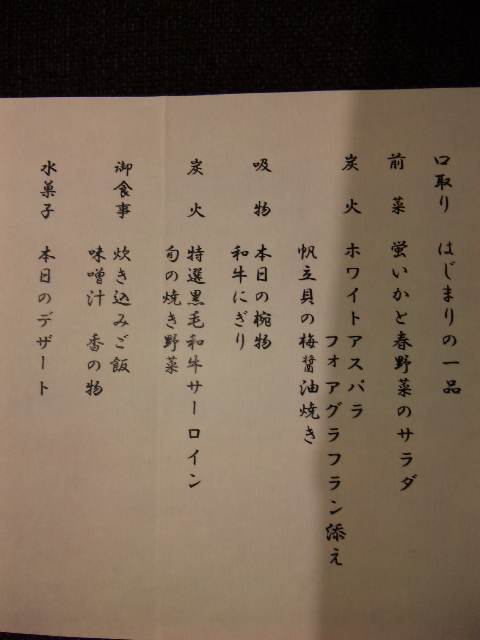 口取り はじまりの一品
前菜 蛍いかと春野菜のサラダ
炭火 ホワイトアスパラ
フォアグラフラン添え
帆立貝の梅醤油焼き
吸物 本日の椀物
和牛にぎり
炭火 特選黒毛和牛サーロイン
旬の焼き野菜
御食事 炊き込みご飯
味噌汁 香の物
水菓子 本日のデザート